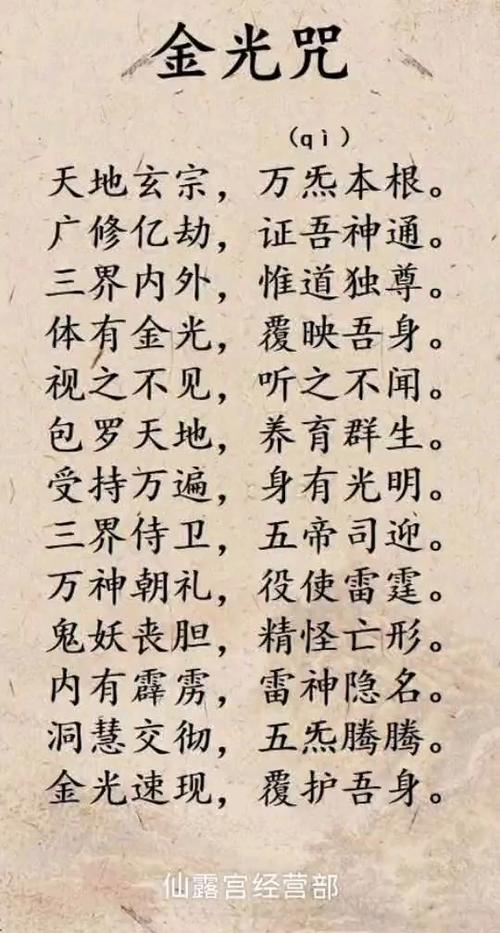 金光咒
（qì）
天地玄宗，万炁本根。
广修亿劫，证吾神通。
三界内外，惟道独尊。
体有金光，覆映吾身。
视之不见，听之不闻。
包罗天地，养育群生。
受持万遍，身有光明。
三界侍卫，五帝司迎。
万神朝礼，役使雷霆。
鬼妖丧胆，精怪亡形。
内有霹雳，雷神隐名。
洞慧交彻，五炁腾腾。
金光速现，覆护吾身。
仙露宫经营部